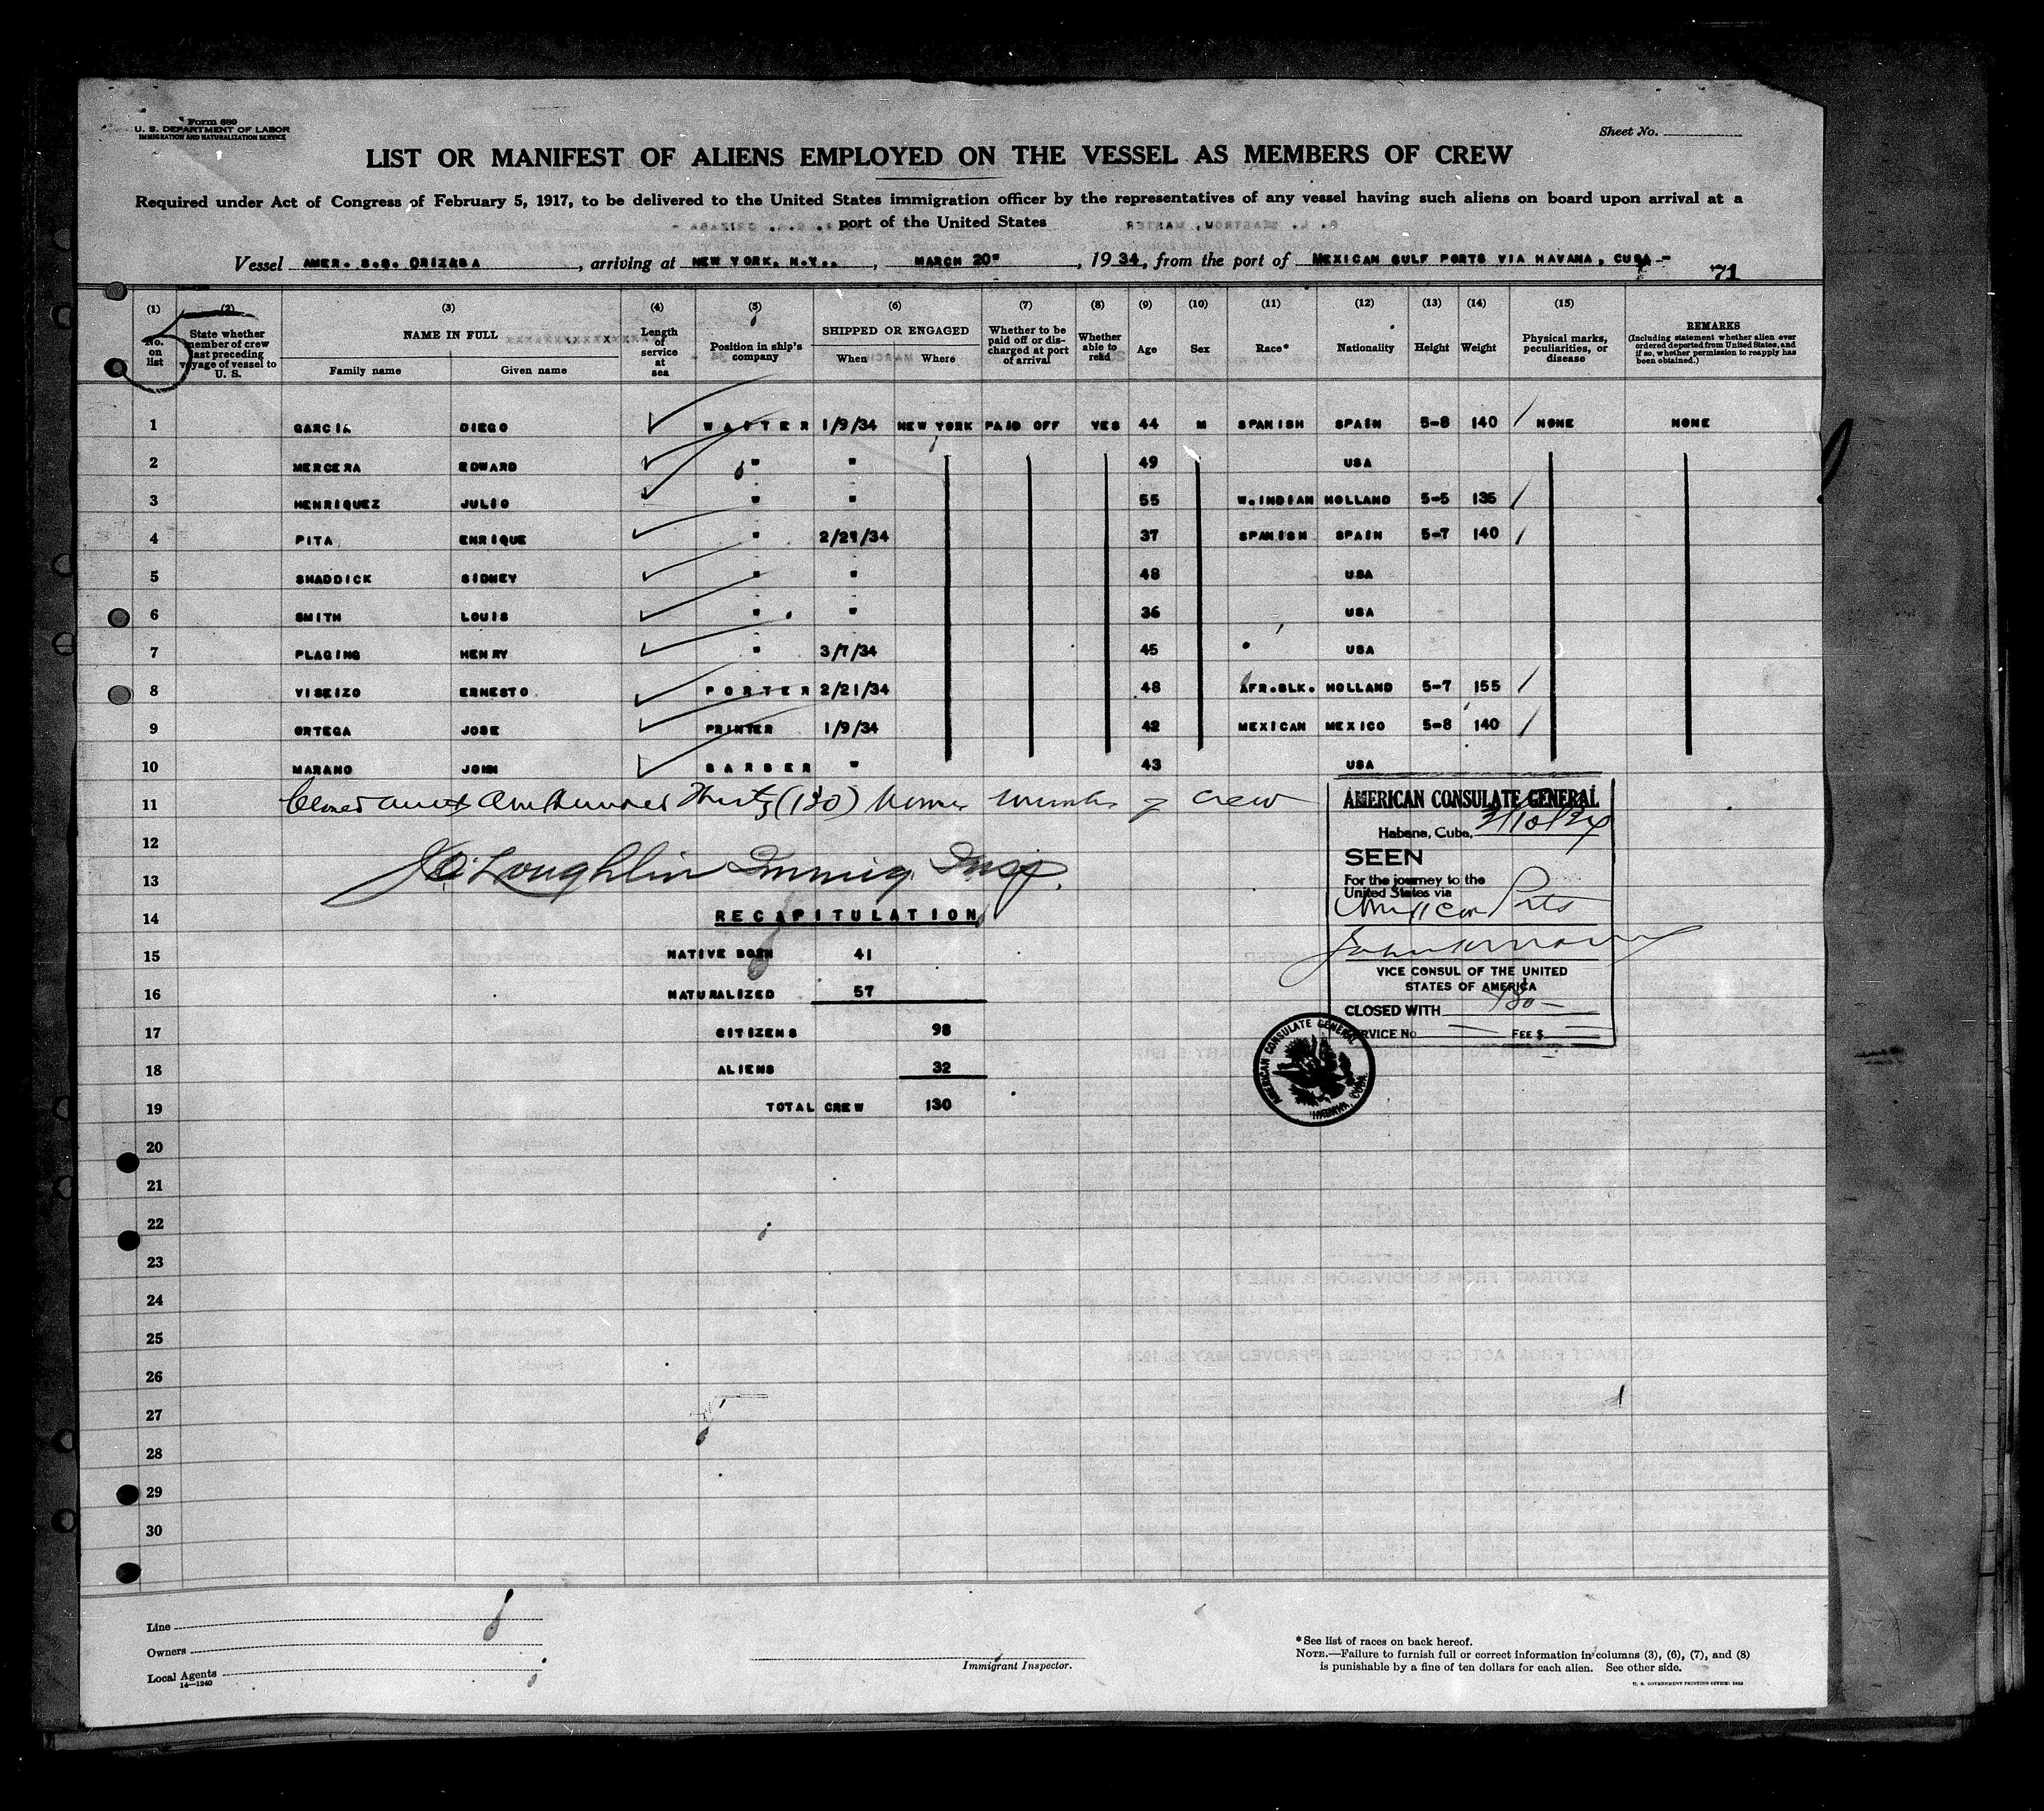 Form 680
U. S. DEPARTMENT OF LABOR
IMMIGRATION AND NATURALIZATION SERVICE
Sheet No.
LIST OR MANIFEST OF ALIENS EMPLOYED ON THE VESSEL AS MEMBERS OF CREW
Required under Act of Congress of February 5, 1917, to be delivered to the United States immigration officer by the representatives of any vessel having such aliens on board upon arrival at a
port of the United States
Vessel AMER. S.S. ORIZABA, arriving at NEW YORK, N.Y., MARCH 20", 1934, from the port of MEXICAN GULF PORTS VIA HAVANA, CUBA -
71
5
(1) (2) (3) (4) (5) (6) (7) (8) (9) (10) (11) (12) (13) (14) (15)
No. on list
State whether member of crew last preceding voyage of vessel to U. S.
NAME IN FULL
Family name Given name
Length of service at sea
Position in ship's company
SHIPPED OR ENGAGED
When Where
Whether to be paid off or discharged at port of arrival
Whether able to read
Age
Sex
Race*
Nationality
Height
Weight
Physical marks, peculiarities, or disease
REMARKS
(Including statement whether alien ever ordered deported from United States, and if so, whether permission to reapply has been obtained.)
1 GARCIA DIEGO WAITER 1/9/34 NEW YORK PAID OFF YES 44 M SPANISH SPAIN 5-8 140 NONE NONE
2 MERCERA EDWARD " " 49 USA
3 HENRIQUEZ JULIO " " 55 W.INDIAN HOLLAND 5-5 135
4 PITA ENRIQUE " 2/21/34 37 SPANISH SPAIN 5-7 140
5 SHADDICK SIDNEY " " 48 USA
6 SMITH LOUIS " " 36 USA
7 PLAGING HENRY " 3/7/34 45 USA
8 VISEIZO ERNESTO PORTER 2/21/34 48 AFR.BLK. HOLLAND 5-7 155
9 ORTEGA JOSE PRINTER 1/9/34 42 MEXICAN MEXICO 5-8 140
10 MARANO JOHN BARBER " 43 USA
11 (130) crew
12
J O'Loughlin Immig. Insp.
13
14 RECAPITULATION
15 NATIVE BORN 41
16 NATURALIZED 57
17 CITIZENS 98
18 ALIENS 32
19 TOTAL CREW 130
20
21
22
23
24
25
26
27
28
29
30
AMERICAN CONSULATE GENERAL
Habana, Cuba,
SEEN
For the journey to the
United States via
VICE CONSUL OF THE UNITED
STATES OF AMERICA
CLOSED WITH 130
SERVICE No. FEE $
AMERICAN CONSULATE GENERAL
HABANA, CUBA
Line
Owners
Local Agents
14—1240
Immigrant Inspector.
*See list of races on back hereof.
NOTE.—Failure to furnish full or correct information in columns (3), (6), (7), and (8)
is punishable by a fine of ten dollars for each alien. See other side.
U. S. GOVERNMENT PRINTING OFFICE: 1933